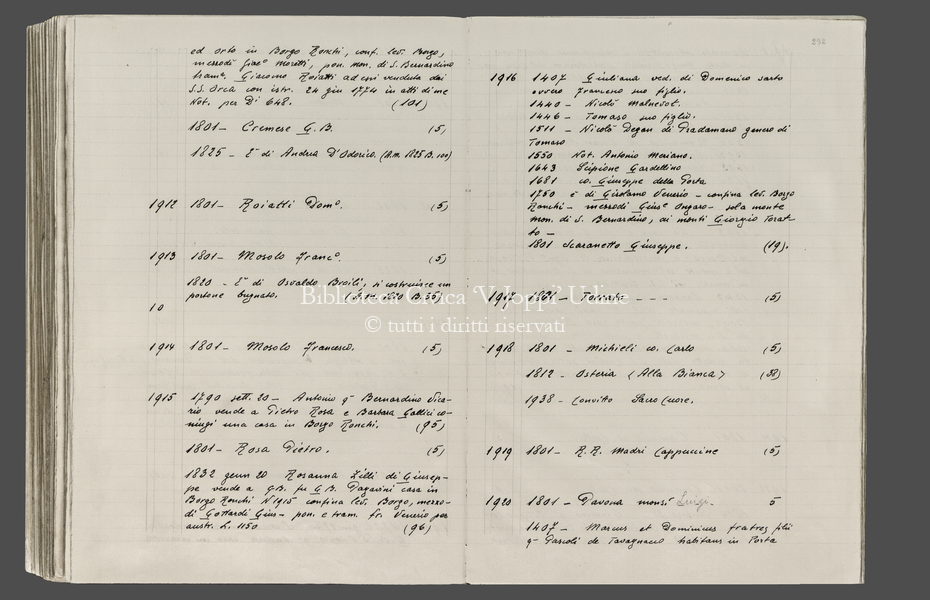 ed orto in Borgo Ronchi, conf. lev. Borgo,
mezzodì Giac° Moretti, pon. mon. di S. Bernardino
tram.ª Giacomo Roiatti ad essi venduta dai
S.S. Orcà con istr. 24 giu 1774 in atti di me
Not. per Dî 648. (101)
1801 - Cremese G.B. (5)
1825 - È di Andrea D'Odorico. (A.m. 1825 B. 100)
1912 1801 - Roiatti Dom°. (5)
1913 1801 - Mosolo Franc°. (5)
1820 - È di Osvaldo Broili, si costruisce un
portone bugnato. 1820 B. 55)
10
1914 1801 - Mosolo Francesco. (5)
1915 1790 sett. 20 - Antonio q- Bernardino Vica-
rio vende a Pietro Rosa e Barbara Gallici co-
niugi una casa in Borgo Ronchi. (95)
1801 - Rosa Pietro. (5)
1832 genn 20 Rosanna Zilli di Giusep-
pe vende a G.B. fu G.B. Pagavini casa in
Borgo Ronchi N 1915 confina lev. Borgo, mezzo-
dì Gottardi Gius - pon. e tram. fr. Venerio per
austr. L. 1150 (96)
232
1916 1407 Giuliana ved. di Domenico sarto
ovvero Francesco suo figlio.
1440 - Nicolò Malnesot.
1446 - Tomaso suo figlio.
1511 - Nicolò Degan di Pradamano genero di
Tomaso
1550 Not. Antonio Mariano.
1643 Scipione Gardellino
1681 co. Giuseppe della Porta
1750 è di Girolamo Venerio - confina lev. Borgo
Ronchi - mezzodì Gius.e Ongaro - sola monte
mon. di S. Bernardino, ai monti Giorgio Torat-
to -
1801 Scaranetto Giuseppe. (19).
1917 1801 - Toreato - - - (5)
1918 1801 - Michieli co. Carlo (5)
1812 - Osteria (Alla Bianca) (58)
1938 - Convitto Sacro Cuore.
1919 1801 - R.R. Madri Cappuccine (5)
1920 1801 - Pavona monsi Luigi - 5
1407 - Marcus et Dominicus fratres filii
q- Pascoli de Tavagnaco habitans in Porta
Biblioteca Civica 'V. Joppi' Udine
© tutti i diritti riservati